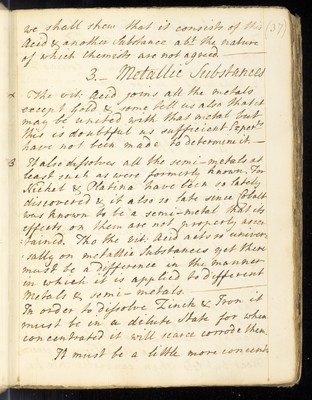 (37)
we shall shew that it consists of this
Acid & another Substance abt. the nature
of which Chemists are not agreed
3. Metallic Substances
The vit: Acid joins all the metals
except Gold & some tell us also that it
may be united with that metal but
this is doubtful as sufficient Expts.
have not been made to determin it.
3 It also dissolves all the semi-metals at
least such as were formerly known. For
Nickel & Platina have been so lately
discovered & it also so late since Cobalt
was known to be a semi-metal that its
effects on them are not properly ascer
tained. Tho the vit: Acid acts so univer
sally on metallic Substances yet there
must be a difference in the manner
in which it is applied to different
Metals & semi-metals.
In order to dissolve Zinck & Iron it
must be in a dilute State for when
concentrated it will scarce corrode them
It must be a little more concent